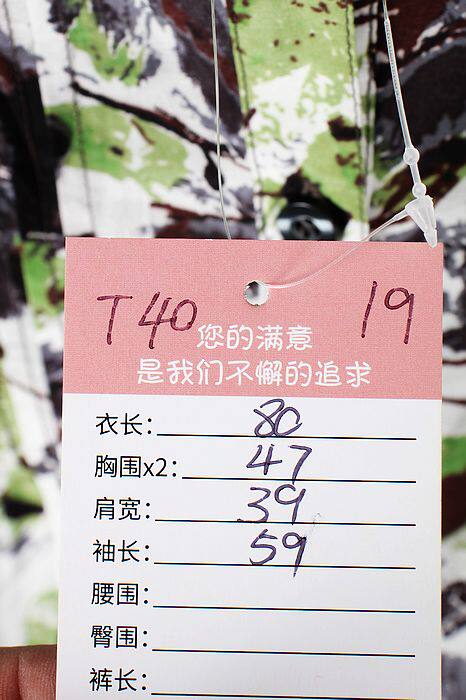 T 40 19
您的满意
是我们不懈的追求
衣长: 80
胸围x2: 47
肩宽: 39
袖长: 59
腰围:
臀围:
裤长: